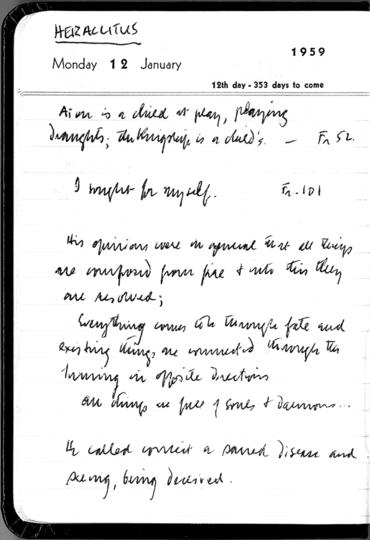 HERACLITUS
1959
Monday 12 January
12th day - 353 days to come
Aion is a child at play, playing
draughts; the kingship is a child's. — Fr 52.
I sought for myself. Fr. 101
His opinions were in general that all things
are composed from fire & into this they
are resolved;
Everything comes to be through fate and
existing things are connected through the
turning in opposite directions
all things are full of souls & daemons...
He called conceit a sacred disease and
seeing, being deceived.